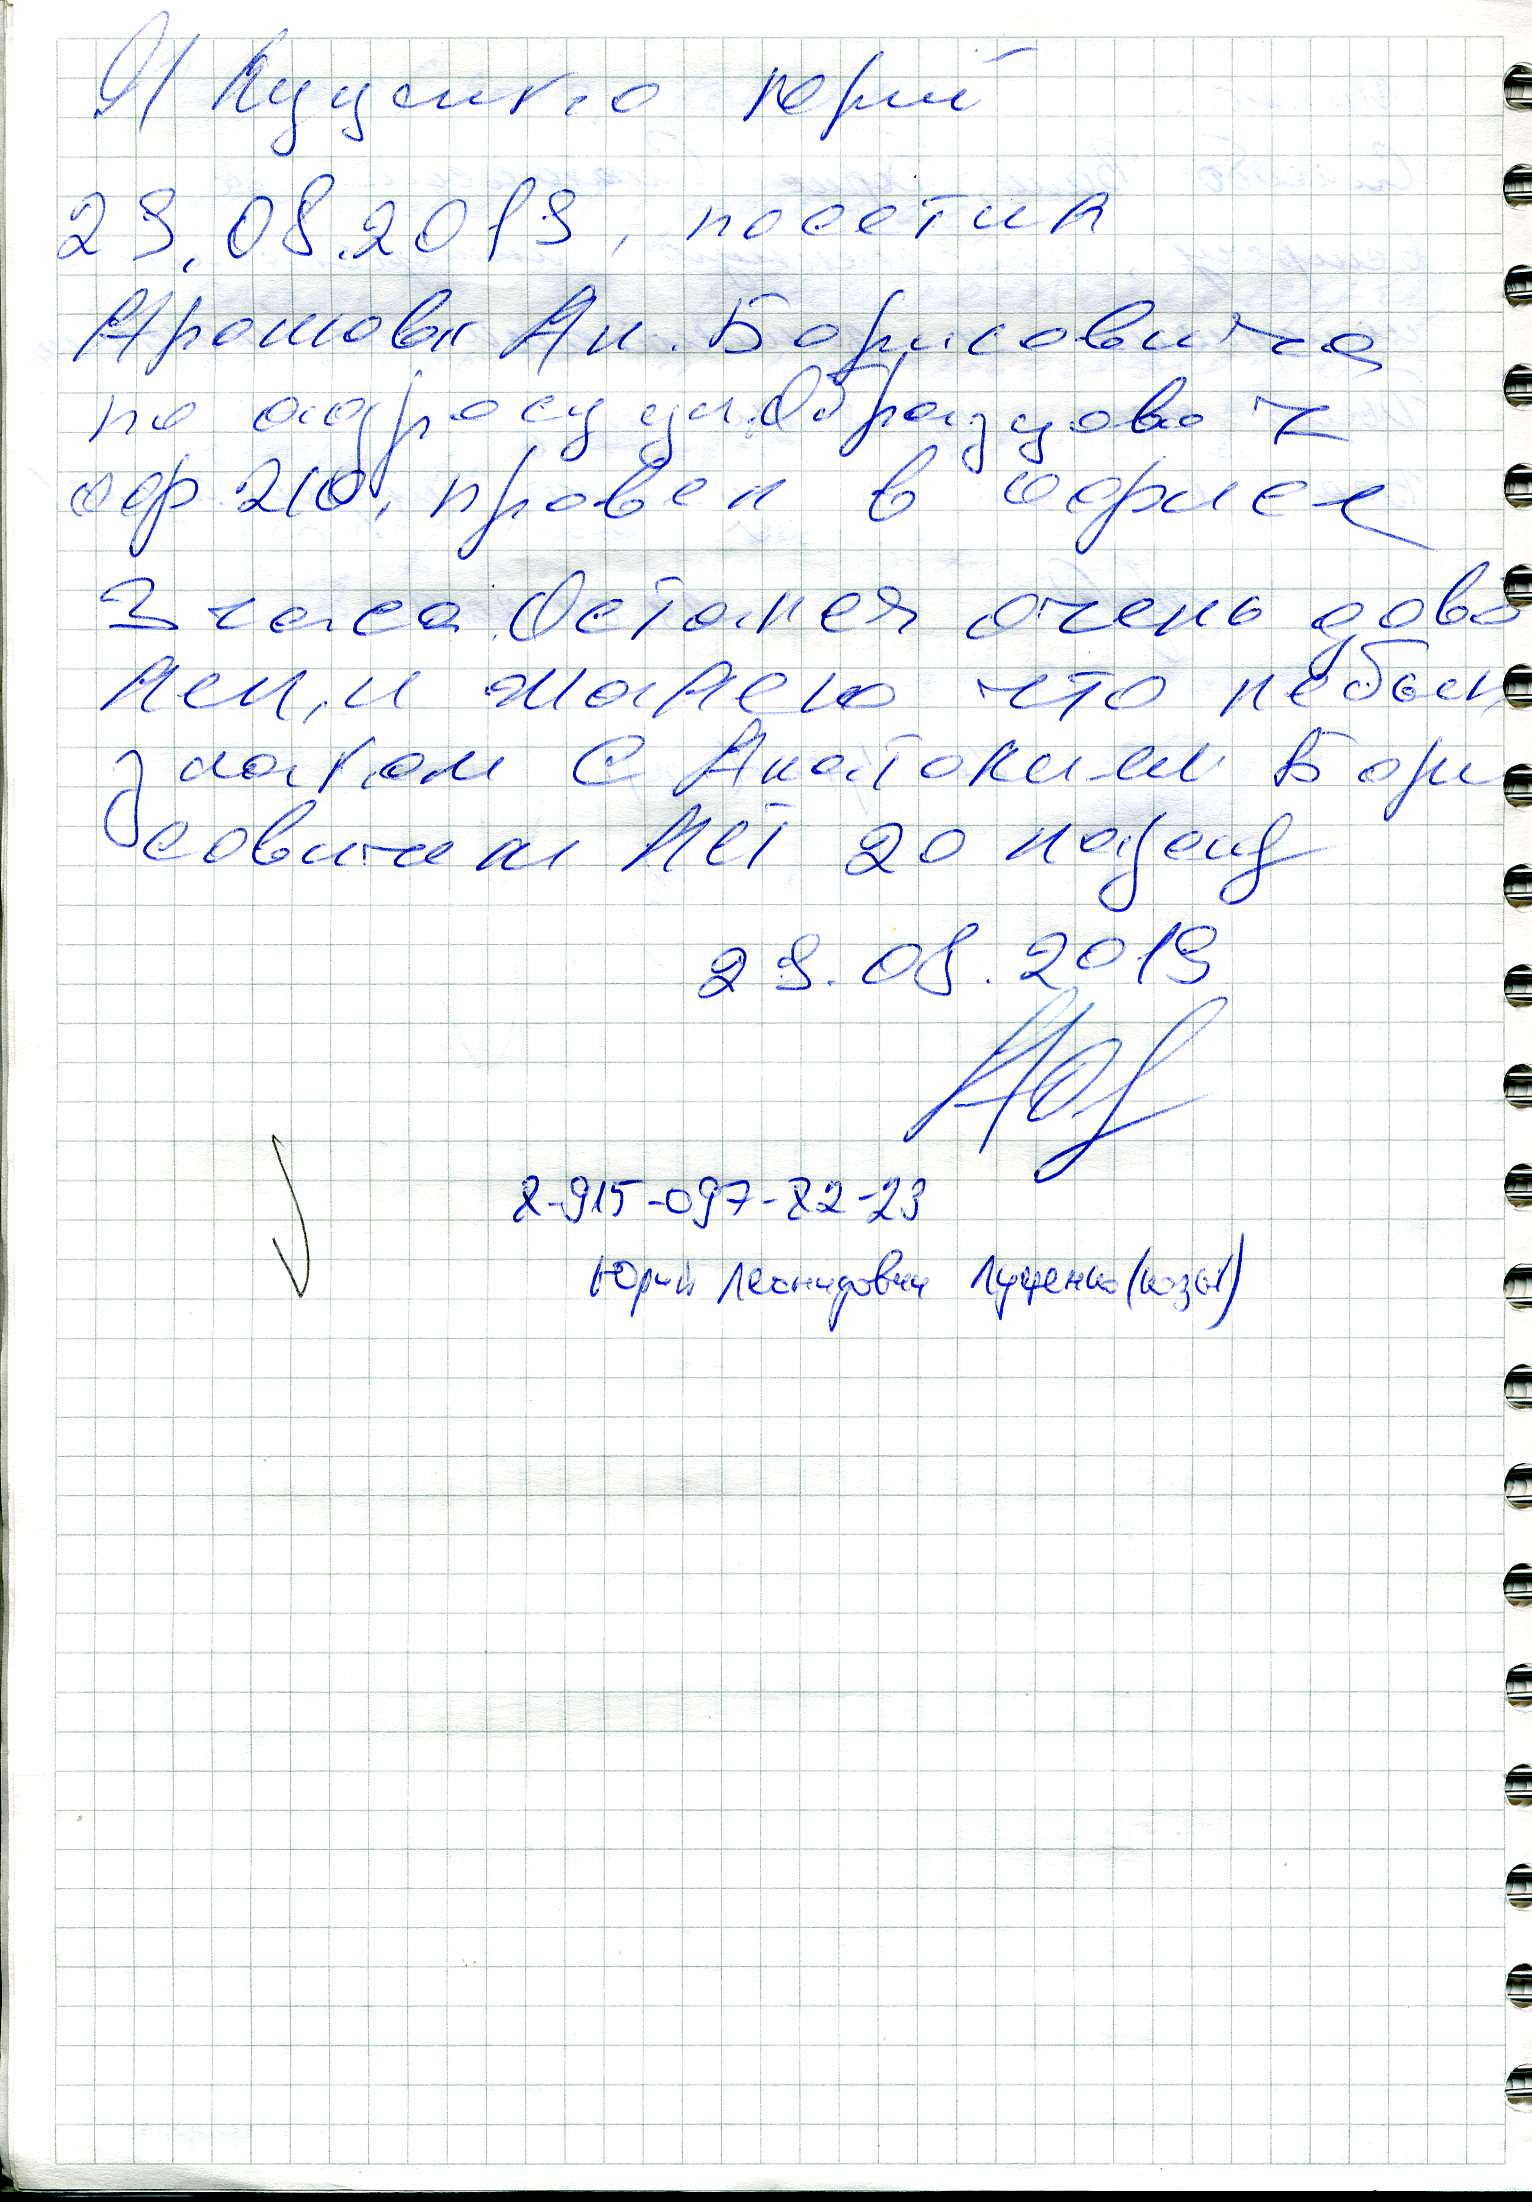 Я Луценко Юрий
29.08.2019, посетил
Ан. Борисовича
по адресу ул. Образцова 7
оф 210, провел в офисе
3 часа. Остался очень дово
лен, и жалею что не был
знаком с Анатолием Бори
совичем лет 20 назад
29.08.2019
8-915-097-82-23
Юрий Леонидович Луценко (козы)